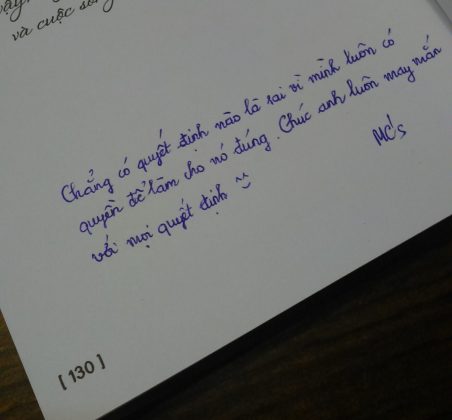 và cuộc
Chẳng có quyết định nào là sai vì mình luôn có
quyền để làm cho nó đúng. Chúc anh luôn may mắn
với mọi quyết định :)
MC's
[130]